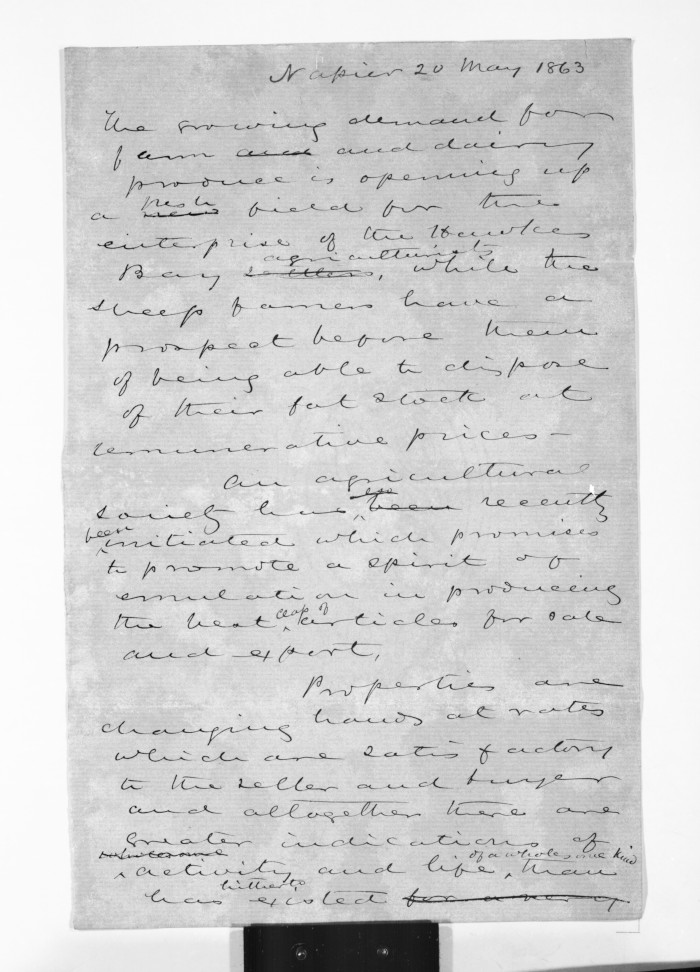 Napier 20 May 1863
The growing demand for
farm and and dairy
produce is openning up
fresh
a new field for the
enterprise of the Hawkes
agriculturists
Bay settlers, while the
sheep farmers have a
prospect before them
of being able to dispose
of their fat stock at
remunerative prices -
An agricultural
society has been recently
been
initiated which promises
to promote a spirit of
emulation in producing
class of
the best articles for sale
and export.
Properties are
changing hands at rates
which are satisfactory
to the seller and buyer
and altogether there are
greater indications of
wholesome of a wholesome kind
activity and life, than
hitherto
has existed for a very